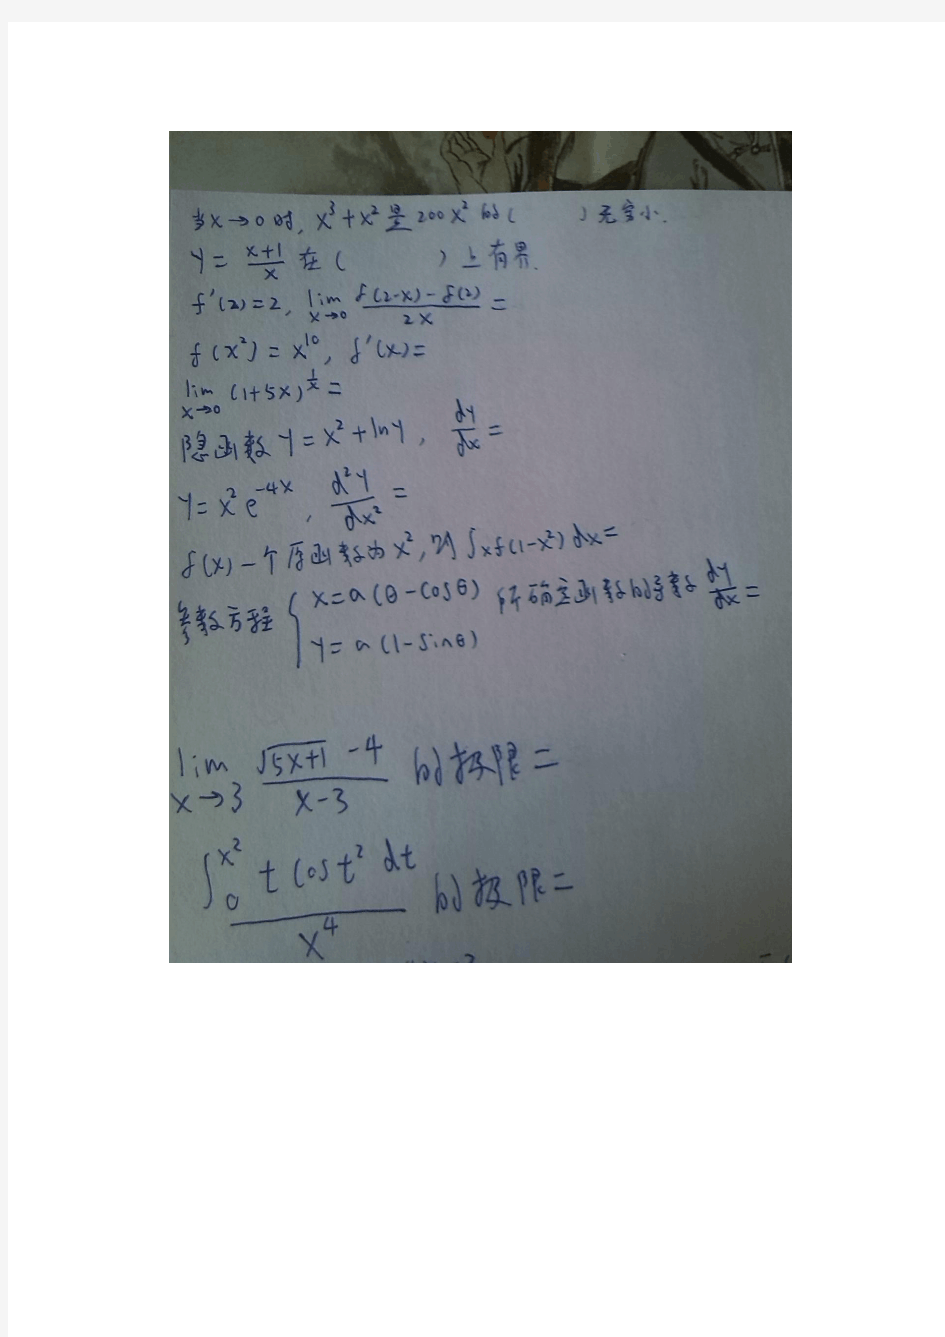 当x→0时, x³+x²是200x²的(  )无穷小.
Y= (x+1)/x 在(  )上有界.
f'(2)=2, lim x→0 (f(2-x)-f(2))/(2x) =
f(x²)=x¹⁰, f'(x)=
lim x→0 (1+5x)^(1/x) =
隐函数Y=x²+lnY, dY/dx =
Y=x²e^(-4x), d²Y/dx² =
f(x)一个原函数为x²,则∫xf(1-x²)dx=
参数方程 { x=a(θ-cosθ) Y=a(1-sinθ) 所确定函数的导数 dY/dx =
lim x→3 (√(5x+1) -4)/(x-3) 的极限=
∫₀^(x²) t cost² dt / x⁴ 的极限=